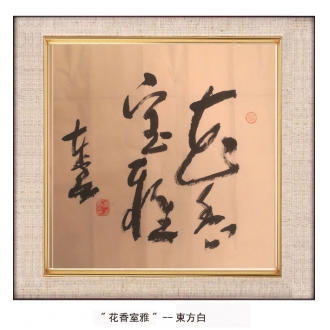 花香
室雅
"花香室雅" -- 東方白